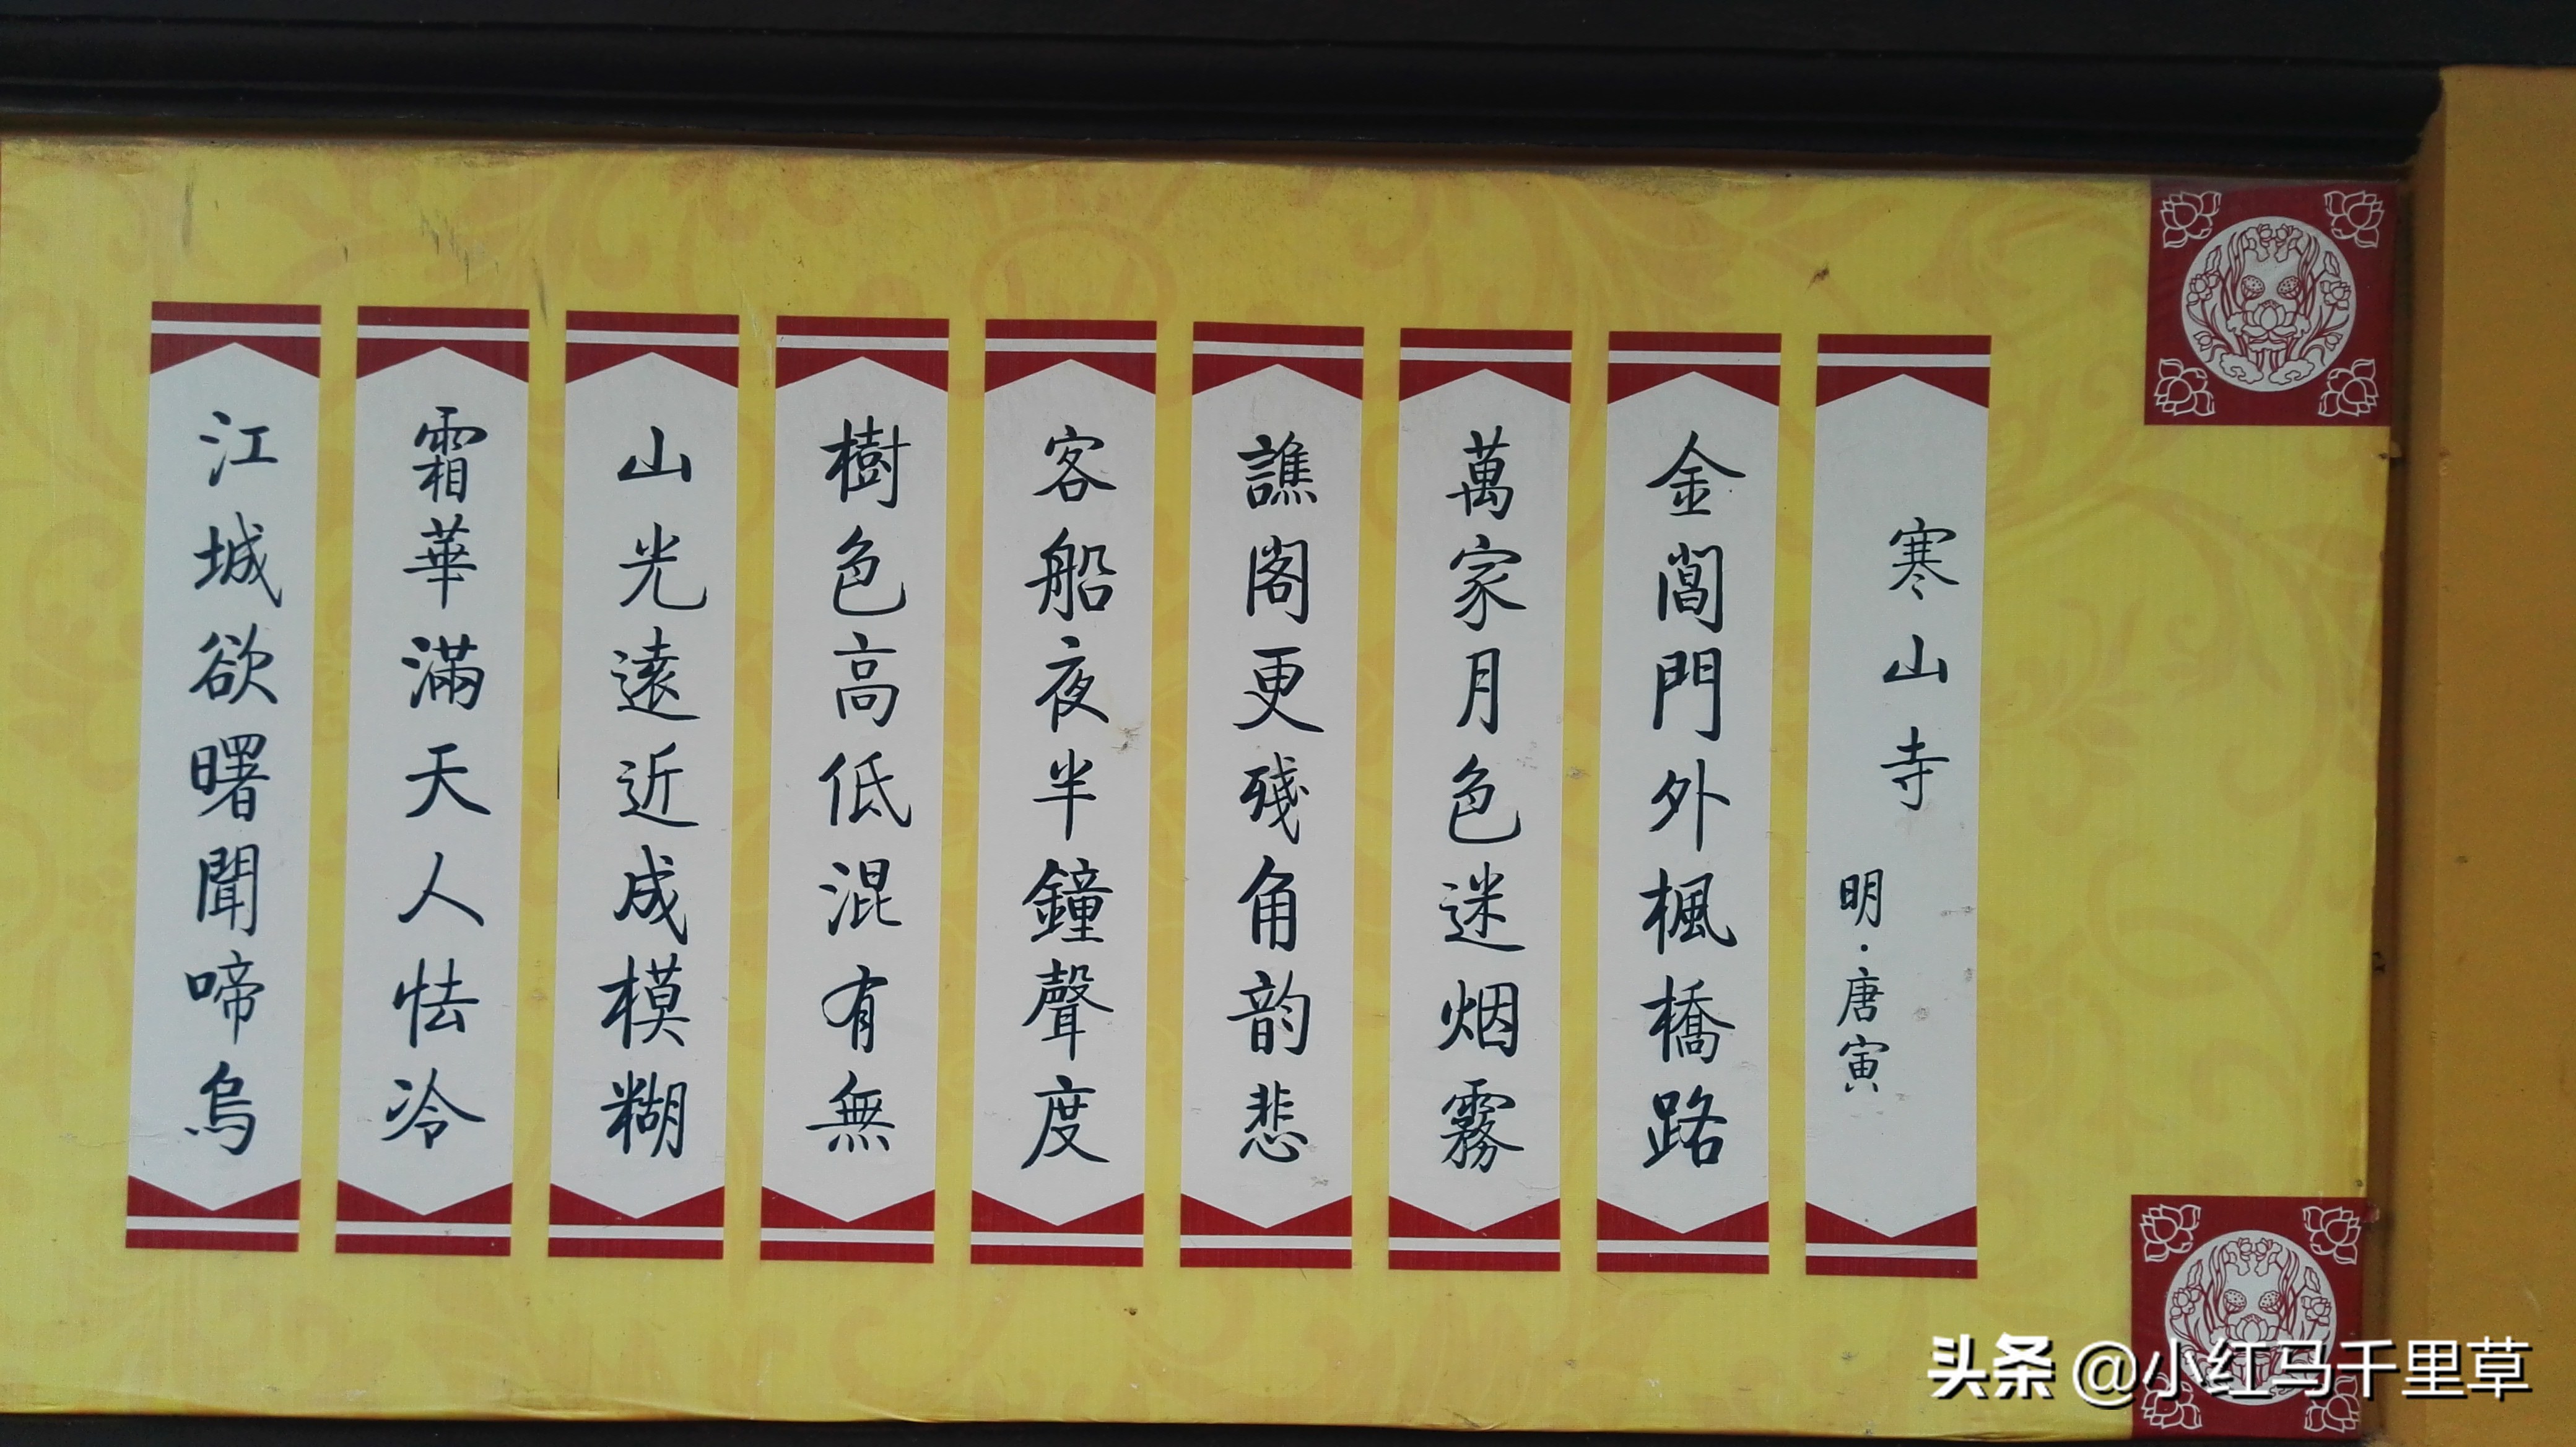 寒山寺
明·唐寅
金閶門外楓橋路
萬家月色迷烟霧
譙閣更殘角韵悲
客船夜半鐘聲度
樹色高低混有無
山光遠近成模糊
霜華滿天人怯冷
江城欲曙聞啼烏
头条 @小红马千里草